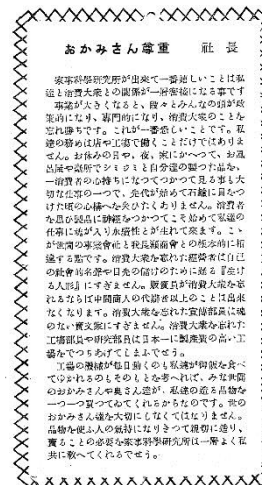 おかみさん尊重　社長
家事科學研究所が出來て一番嬉しいことは私
達と消費大衆との關係が一層密接になる事です
事業が大きくなると、段々とみんなの頭が政
策的になり、專門的になり、消費大衆のことを
忘れ勝ちです。これが一番恐しいことです。私
達の務めは店や工場で働くことだけではありま
せん。お休みの日や、夜、家にかへつて、お風
呂屋や臺所でシミジミと自分達の製つた品を、
一消費者の心持ちになつてつかつて見る事も大
切な仕事の一つで、先代が始めて石鹼に目をつ
けた頃の心構へを失ひたくありません。消費者
を思ひ製品に神經をつかつてこそ始めて私達の
仕事に魂が入り永續性とが生れて來ます。こと
が世間の事業會社と我長瀨商會との根本的に相
違する點です。消費大衆を忘れた經營者は自己
の社會的名譽や目先の儲けのために踊る『生け
る人形』にすぎません。販賣員が消費大衆を忘
れるならば中間商人の代辯者以上のことは出來
なくなります。消費大衆を忘れた宣傳部員は魂
のない賣文家にすぎません。消費大衆を忘れた
工場部員や研究部員は日本一に製産費の高い工
場をでつちあげてしまふでせう。
工場の機械が每日動くのも私達が御飯を食べ
てゆかれるのもそのもとを考へれば、みな世間
のおかみさんや奥さん達が、私達の造る品物を
一つ一つ買つてゐてくれるからなのです。世の
おかみさん達を大切にしなくてはなりません。
品物を使ふ人の氣持になりきつて親切に造り、
賣ることの必要を家事科學研究所は一番よく私
共に教へてくれるでせう。